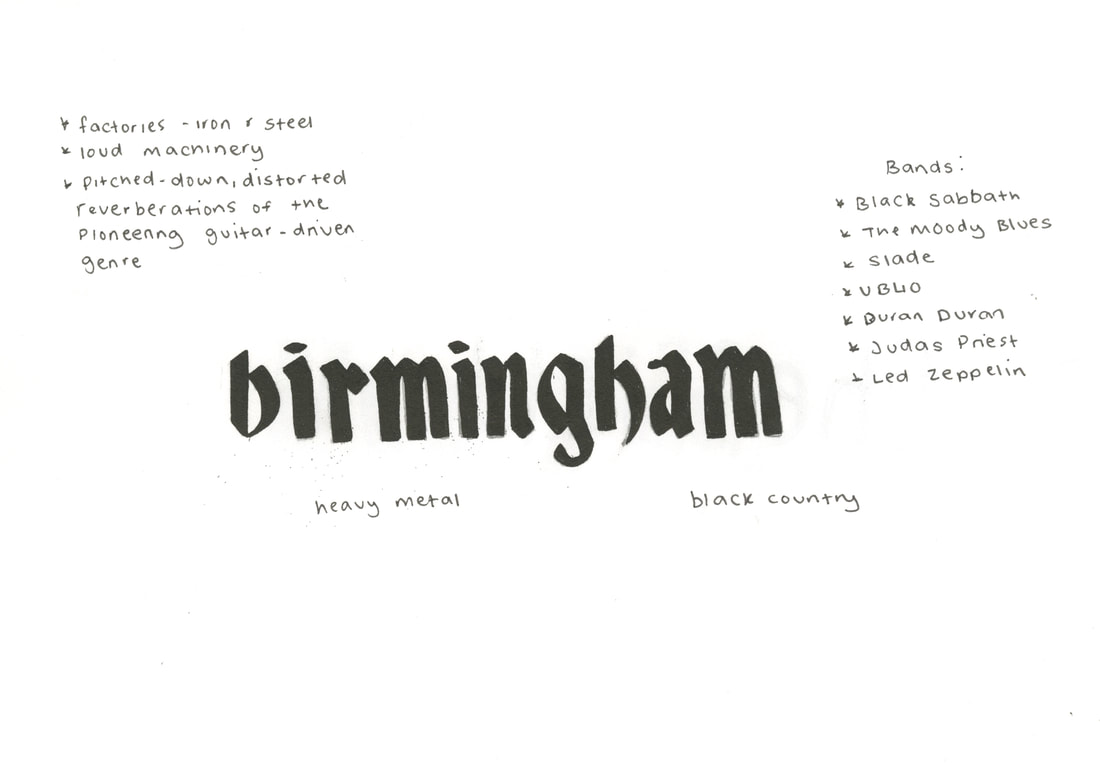 * factories - iron & steel
* loud machinery
* Pitched-down, distorted
reverberations of the
Pioneering guitar-driven
genre
Bands:
* Black Sabbath
* The Moody Blues
* Slade
* UB40
* Duran Duran
* Judas Priest
* Led Zeppelin
birmingham
heavy metal
black country